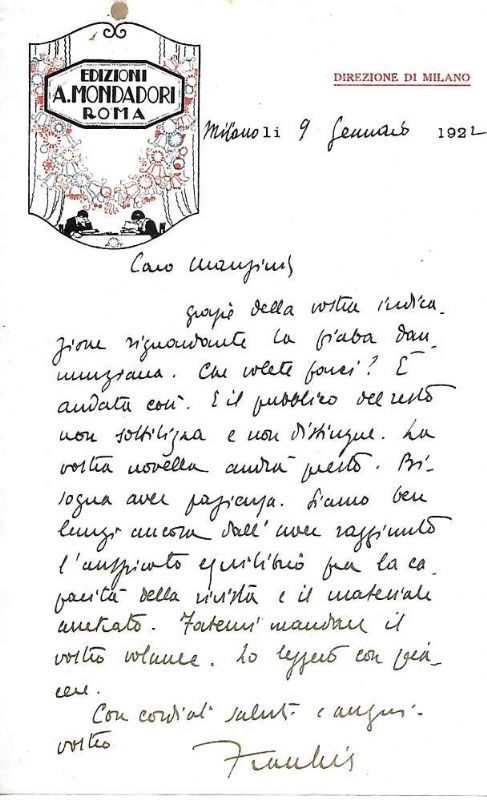 EDIZIONI
A. MONDADORI
ROMA
DIREZIONE DI MILANO
Milano li 9 Gennaio 1922
Caro
grazie della vostra indica-
zione riguardante la fiaba dan-
nunziana. Che volete farci? È
andata così. E il pubblico del resto
non sottilizza e non distingue. La
vostra novella andrà presto. Bi-
sogna aver pazienza. Siamo ben
lungi ancora dall'aver raggiunto
l'auspicato equilibrio fra la ca-
pacità della rivista e il materiale
arretrato. Fatemi mandare il
vostro volume. Lo leggerò con pia-
cere.
Con cordiali saluti e auguri
vostro